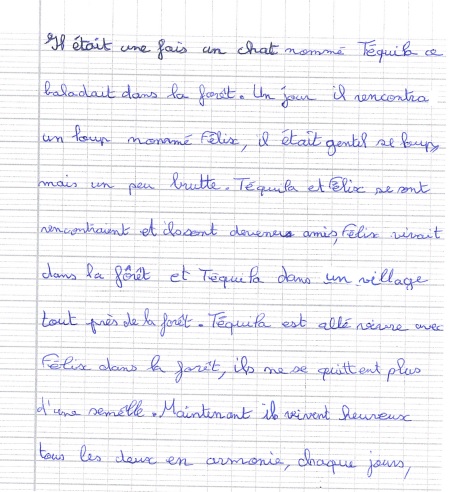 Il était une fois un chat nommé Téquila ce
baladait dans la forêt. Un jour il rencontra
un loup nommé Félix, il était gentil se loup,
mais un peu brutte. Téquila et Félix se sont
rencontraient et ils sont devenus amis, Félix vivait
dans la fôrêt et Téquila dans un village
tout près de la forêt. Téquila est allé vivre avec
Félix dans la forêt, ils ne se quittent plus
d'une semelle. Maintenant ils vivent heureux
tous les deux en armonie, chaque jours,